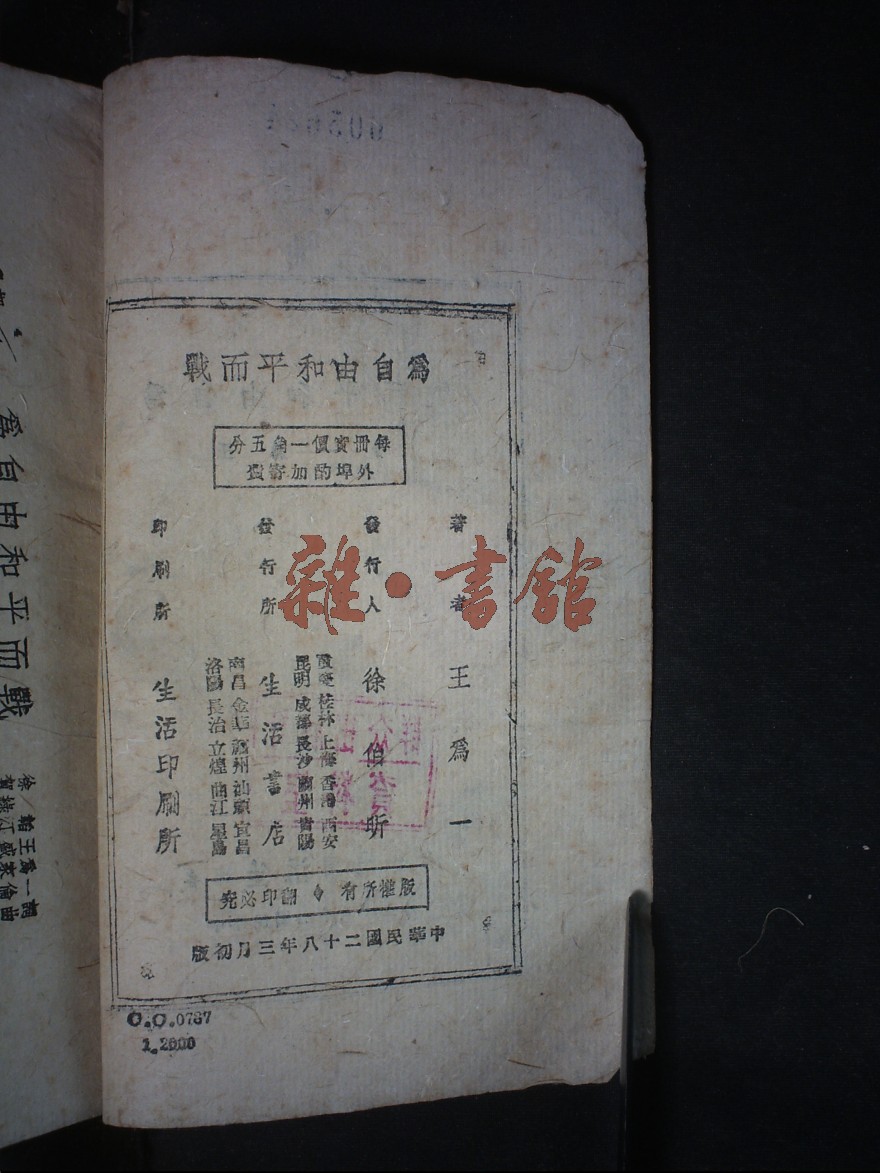 為自由和平而戰
每冊實價一角五分
外埠酌加寄費
著者 王為一
發行人 徐伯昕
發行所 生活書店
重慶 桂林 上海 香港 西安
昆明 成都 長沙 蘭州 貴陽
南昌 金華 福州 汕頭 宜昌
洛陽 長治 立煌 曲江 星島
印刷所 生活印刷所
版權所有 翻印必究
中華民國二十八年三月初版
O.O.0787
1.2000
雜·書館
為自由和平而戰